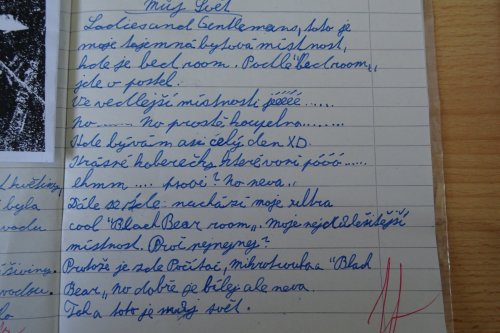 Můj Svět
Ladies and Gentlemans, toto je
moje tajemná bytová místnost,
kde je bed room. Podle "Bedroom",
jde o postel.
Ve vedlejší místnosti jéééé......
no ....... No prostě koupelna.......
Kde bývám asi celý den XD.
Krásné koberečky, které voní póóó.....
ehmm .... prooi? No neva..
Dále se zde nachází moje ultra
cool "Black Bear room". Moje nejdůležitější
místnost. Proč nejnejnej?
Protože je zde Počítač, Mikrovlnka a "Black
Bear", No dobře je bílej ale neva.
Tak a toto je můj svět.
květiny,
byla
vodu